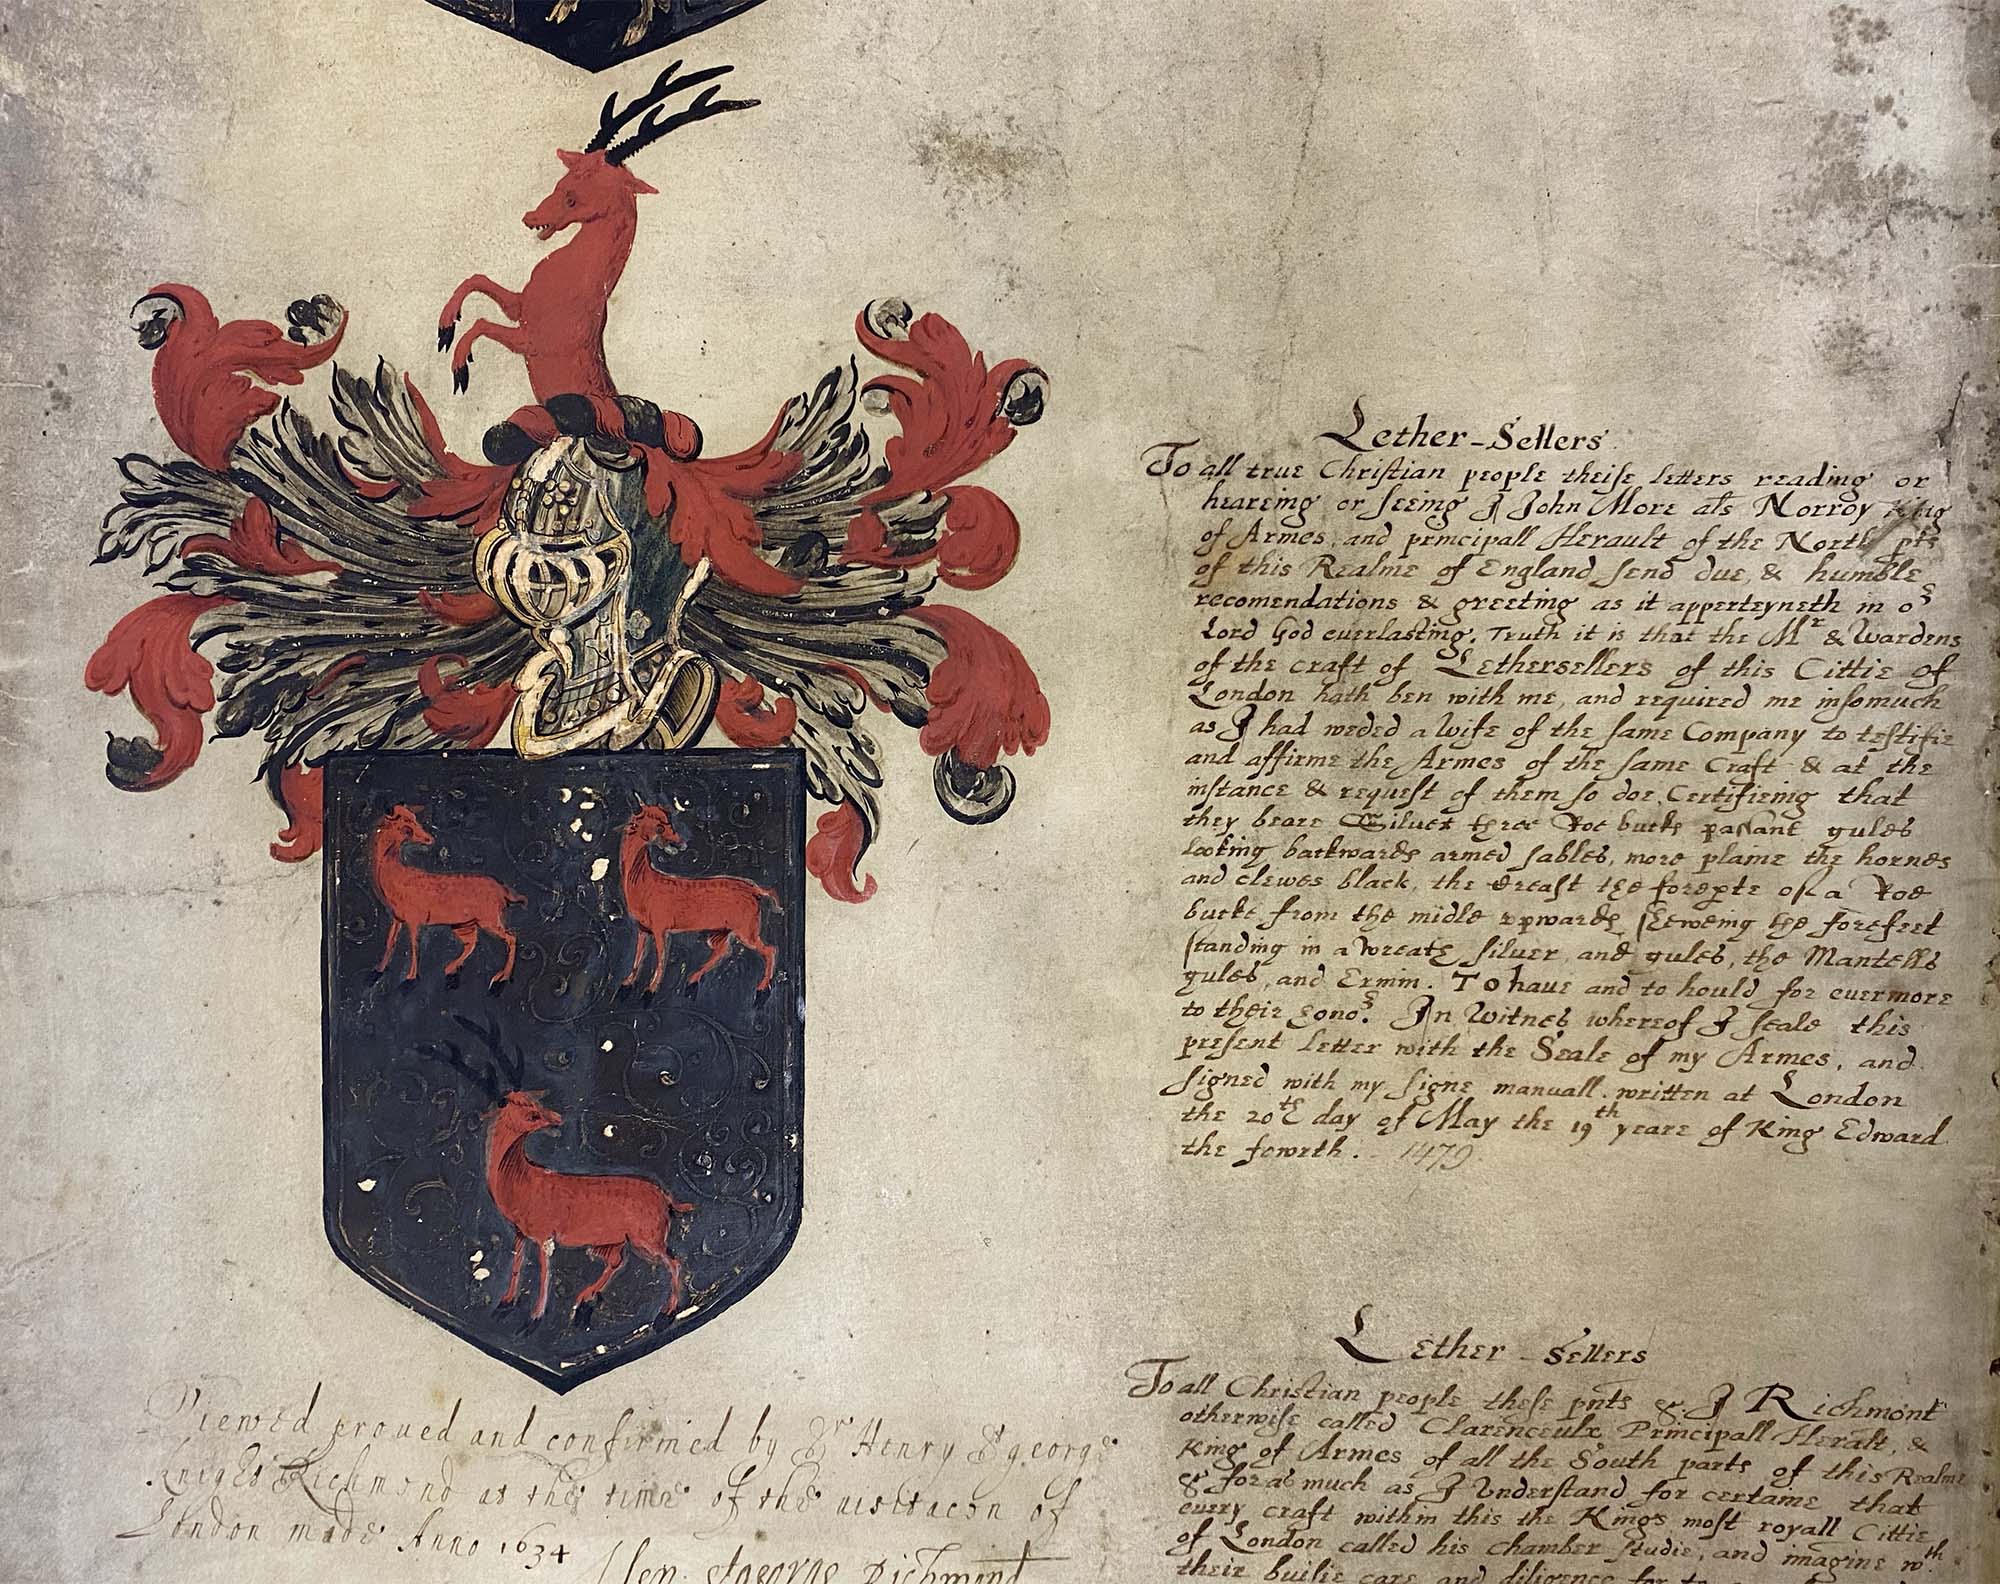 Lether-Sellers
To all true Christian people theise letters reading or
heareing or seeing I John More als Norroy King
of Armes, and principall Herault of the North pts
of this Realme of England send due, & humble
recomendations & greeting as it apperteyneth in or
Lord God everlasting. Truth it is that the Mr & Wardens
of the craft of Lethersellers of this Cittie of
London hath ben with me, and required me insomuch
as I had weded a wife of the same Company to testifie
and affirme the Armes of the same Craft & at the
instance & request of them so doe. Certifieing that
they beare Silver three Roe bucks passant gules
looking backwards armed sables, more plaine the hornes
and clewes black, the breast the forepte of a Roe
bucke from the midle upwards sheweing the forefeet
standing in a wreath silver, and gules, the Mantells
gules, and Ermin. To have and to hould for evermore
to their honor. In Witnes whereof I seale this
present letter with the Seale of my Armes, and
signed with my signe manuall. written at London
the 20th day of May the 19th yeare of King Edward
the fowrth. 1479.
Lether-Sellers
To all Christian people these pnts &c I Richmont
otherwise called Clarenceulx Principall Heralt, &
King of Armes of all the South parts of this Realme
&c foras much as I Understand for certaine that
every craft within this the Kings most royall Cittie
of London called his chamber studie, and imagine wth
their builie care and diligence for to
Viewed proved and confirmed by Sr Henry St george
Knight Richmond at the time of the visitacon of
London made Anno 1634
Hen. St george Richmond